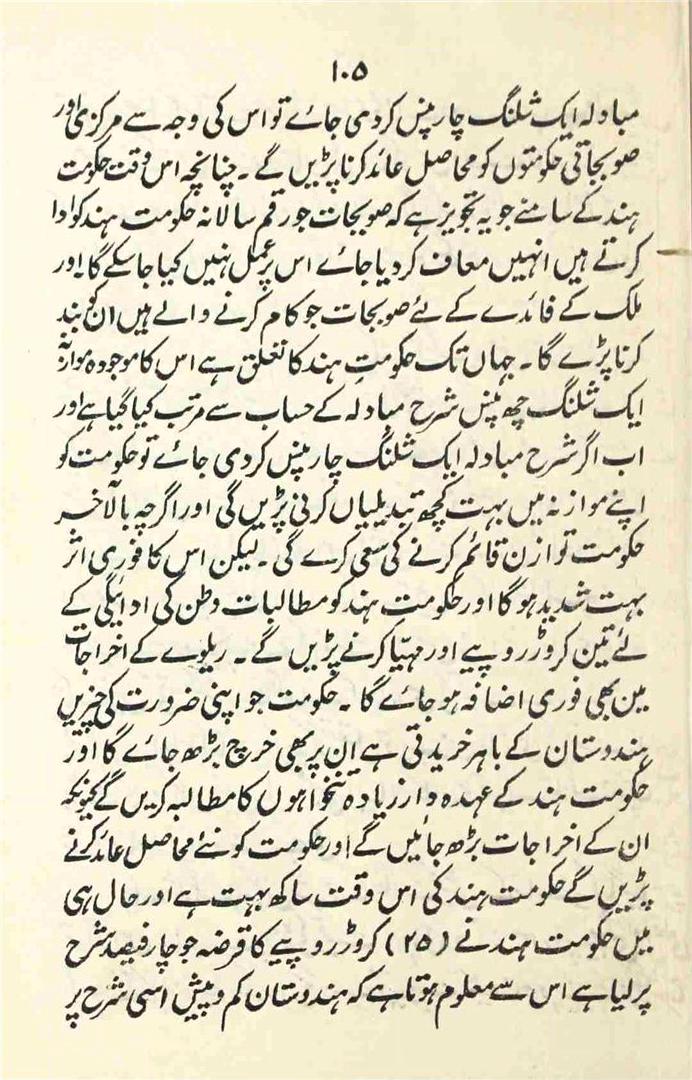 ۱۰۵
مبادلہ ایک شلنگ چار پنس کردی جائے تو اس کی وجہ سے مرکزی اور
صوبجاتی حکومتوں کو محاصل عائد کرنا پڑیں گے ۔ چنانچہ اس وقت حکومت
ہند کے سامنے جو یہ تجویز ہے کہ صوبجات جو رقم سالانہ حکومت ہند کو ادا
کرتے ہیں انہیں معاف کردیا جائے اس پر عمل نہیں کیا جاسکے گا ۔ اور
ملک کے فائدے کے لئے صوبجات جو کام کرنے والے ہیں ان کو بند
کرنا پڑے گا ۔ جہاں تک حکومتِ ہند کا تعلق ہے اس کا موجودہ موازنہ
ایک شلنگ چھ پنس شرح مبادلہ کے حساب سے مرتب کیا گیا ہے اور
اب اگر شرح مبادلہ ایک شلنگ چار پنس کردی جائے تو حکومت کو
اپنے موازنہ میں بہت کچھ تبدیلیاں کرنی پڑیں گی اور اگرچہ بالآخر
حکومت توازن قائم کرنے کی سعی کرے گی ۔ لیکن اس کا فوری اثر
بہت شدید ہوگا اور حکومتِ ہند کو مطالبات وطن کی ادائیگی کے
لئے تین کروڑ روپیے اور مہیّا کرنے پڑیں گے ۔ ریلوے کے اخراجات
میں بھی فوری اضافہ ہوجائے گا ۔ حکومت جو اپنی ضرورت کی چیزیں
ہندوستان کے باہر خریدتی ہے ان پر بھی خرچ بڑھ جائے گا اور
حکومت ہند کے عہدہ دار زیادہ تنخواہوں کا مطالبہ کریں گے کیونکہ
ان کے اخراجات بڑھ جائیں گے اور حکومت کو نئے محاصل عائد کرنے
پڑیں گے حکومت ہند کی اس وقت ساکھ بہت ہے اور حال ہی
میں حکومت ہند نے ( ۲۵ ) کروڑ روپیے کا قرضہ جو چار فیصد شرح
پر لیا ہے اس سے معلوم ہوتا ہے کہ ہندوستان کم و بیش اسی شرح پر